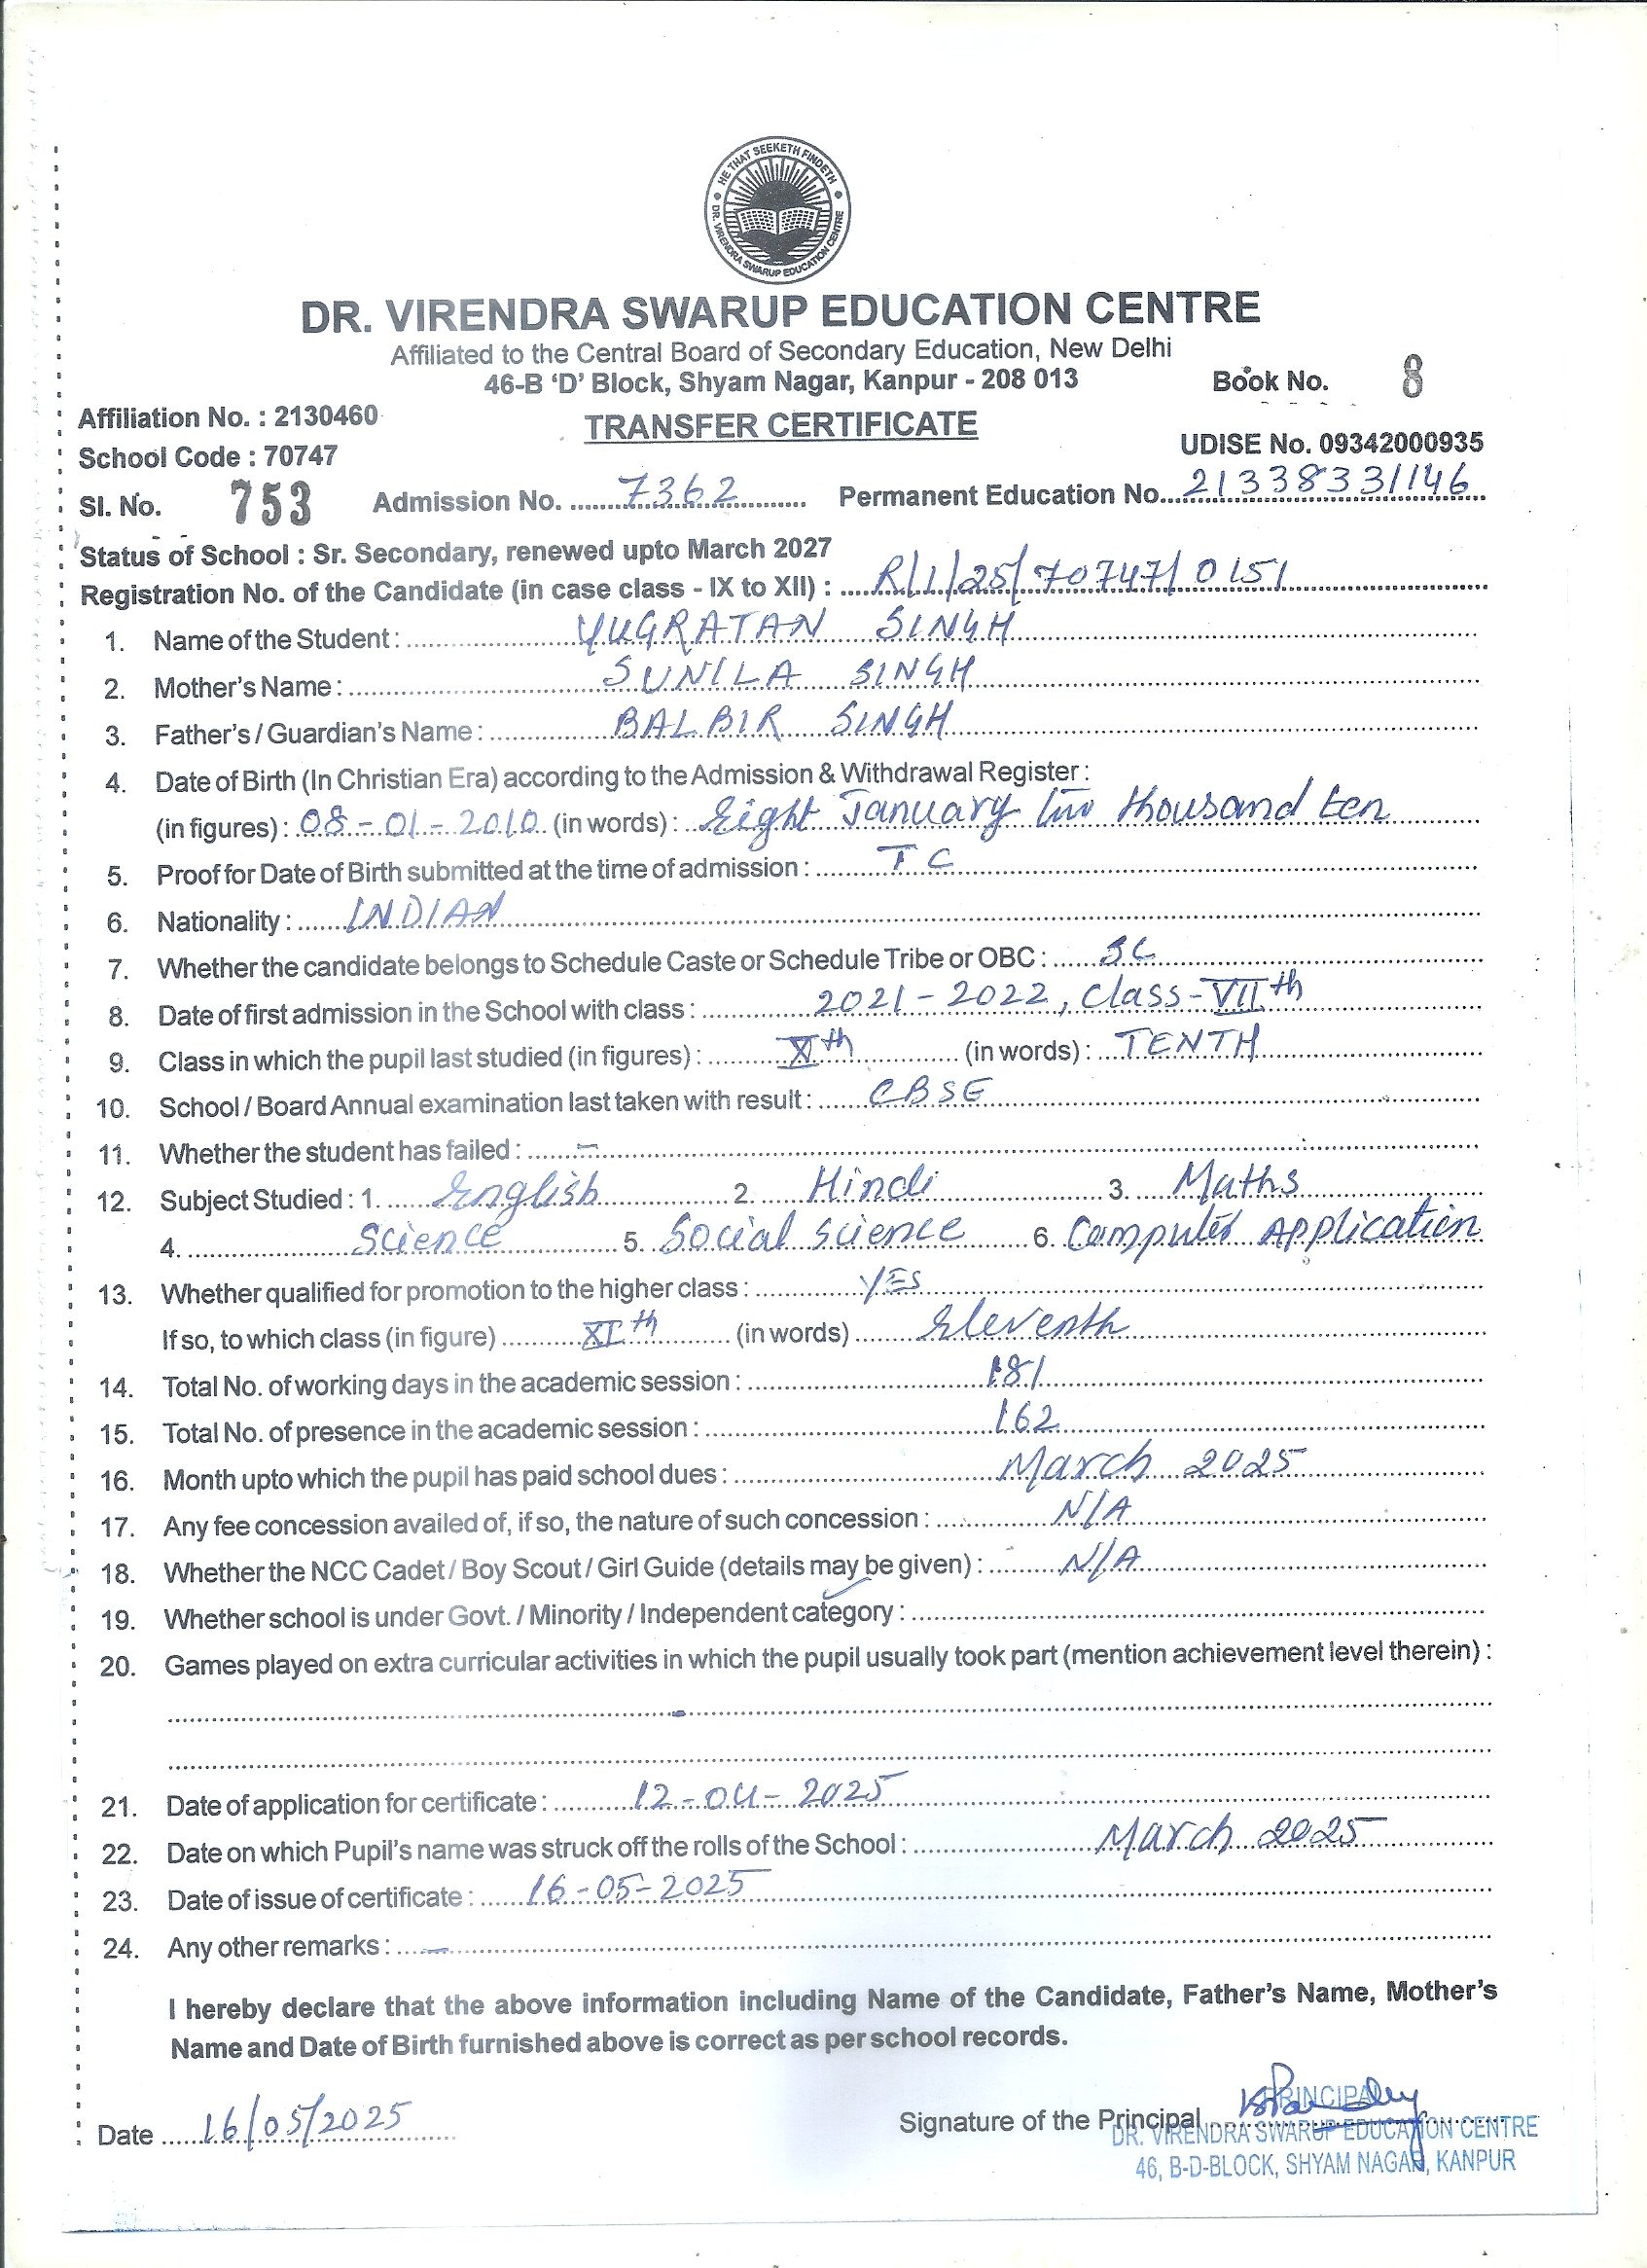 HE THAT SEEKETH FINDETH
DR. VIRENDRA SWARUP EDUCATION CENTRE
DR. VIRENDRA SWARUP EDUCATION CENTRE
Affiliated to the Central Board of Secondary Education, New Delhi
46-B 'D' Block, Shyam Nagar, Kanpur - 208 013 Book No. 8
Affiliation No. : 2130460 TRANSFER CERTIFICATE
School Code : 70747 UDISE No. 09342000935
Sl. No. 753 Admission No. 7362 Permanent Education No. 21338331146
Status of School : Sr. Secondary, renewed upto March 2027
Registration No. of the Candidate (in case class - IX to XII) : R/1/25/70747/0151
1. Name of the Student : YUGRATAN SINGH
2. Mother's Name : SUNILA SINGH
3. Father's / Guardian's Name : BALBIR SINGH
4. Date of Birth (In Christian Era) according to the Admission & Withdrawal Register :
(in figures) : 08-01-2010 (in words) : Eight January two thousand ten
5. Proof for Date of Birth submitted at the time of admission : TC
6. Nationality : INDIAN
7. Whether the candidate belongs to Schedule Caste or Schedule Tribe or OBC : SC
8. Date of first admission in the School with class : 2021-2022, Class-VIIth
9. Class in which the pupil last studied (in figures) : Xth (in words) : TENTH
10. School / Board Annual examination last taken with result : CBSE
11. Whether the student has failed : -
12. Subject Studied : 1. English 2. Hindi 3. Maths
4. Science 5. Social Science 6. Computer Application
13. Whether qualified for promotion to the higher class : YES
If so, to which class (in figure) XIth (in words) Eleventh
14. Total No. of working days in the academic session : 181
15. Total No. of presence in the academic session : 162
16. Month upto which the pupil has paid school dues : March 2025
17. Any fee concession availed of, if so, the nature of such concession : N/A
18. Whether the NCC Cadet / Boy Scout / Girl Guide (details may be given) : N/A
19. Whether school is under Govt. / Minority / Independent category :
20. Games played on extra curricular activities in which the pupil usually took part (mention achievement level therein) :
-
21. Date of application for certificate : 12-04-2025
22. Date on which Pupil's name was struck off the rolls of the School : March 2025
23. Date of issue of certificate : 16-05-2025
24. Any other remarks : -
I hereby declare that the above information including Name of the Candidate, Father's Name, Mother's
Name and Date of Birth furnished above is correct as per school records.
Date 16/05/2025 Signature of the Principal
PRINCIPAL
DR. VIRENDRA SWARUP EDUCATION CENTRE
46, B-D-BLOCK, SHYAM NAGAR, KANPUR